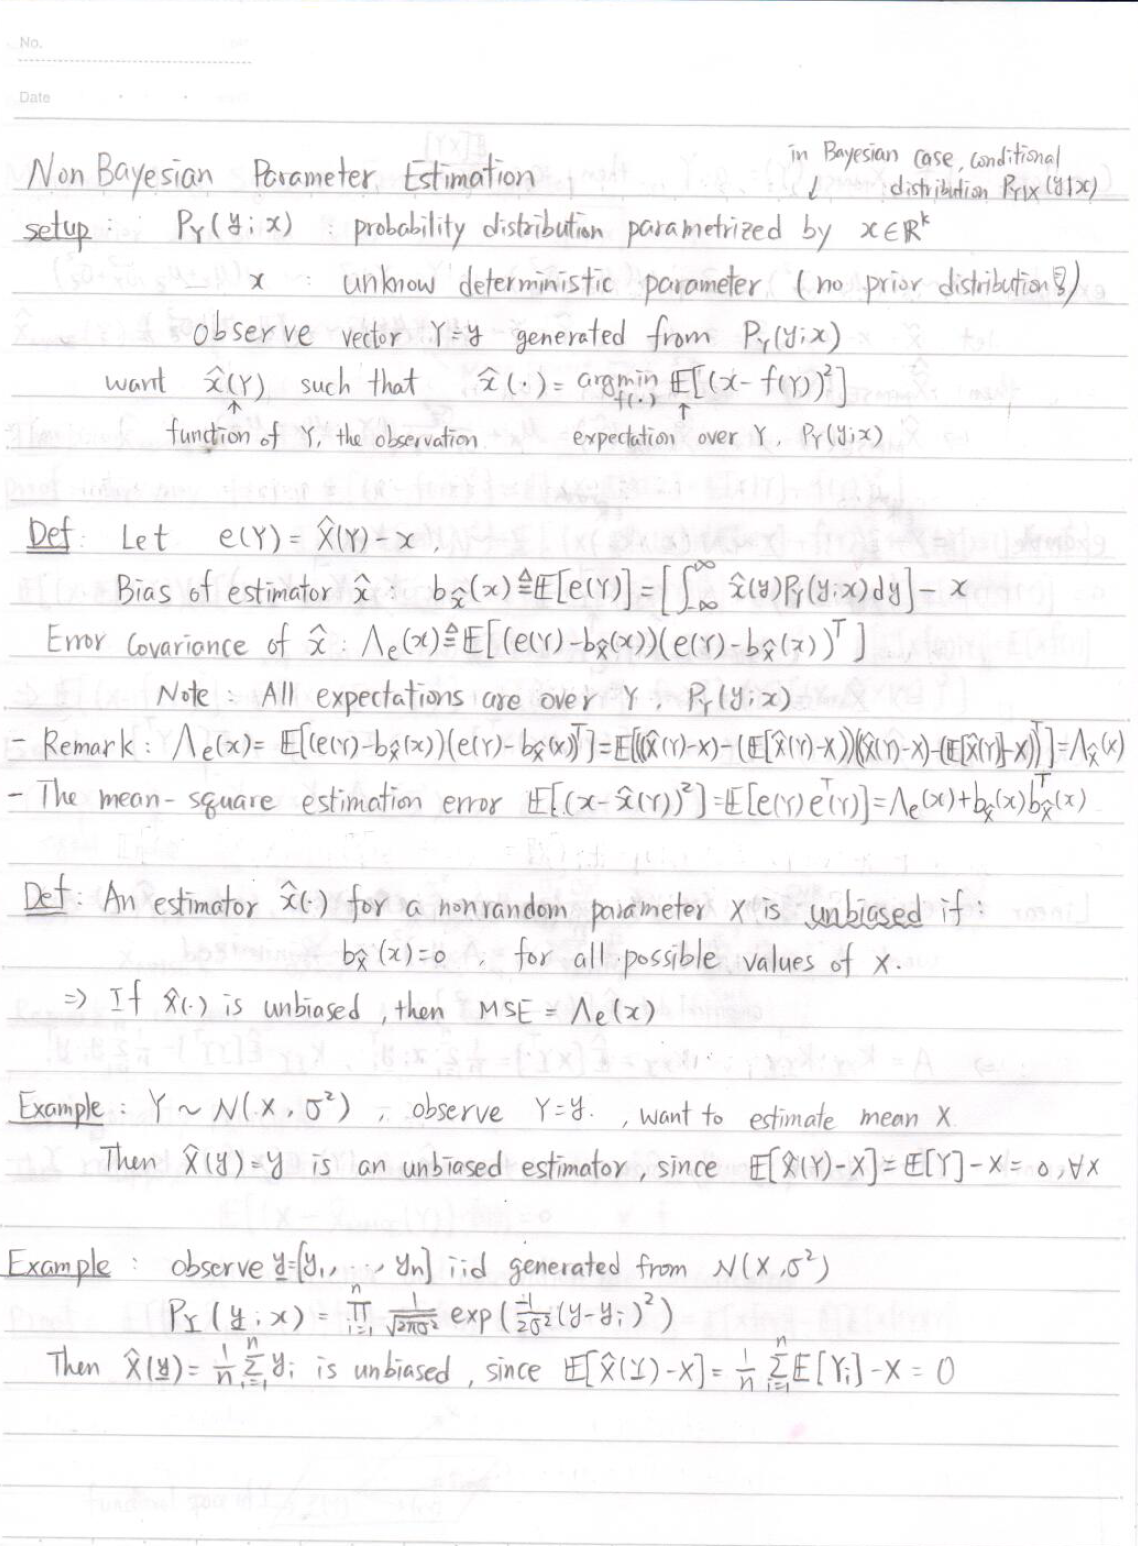 No.
Date
in Bayesian case, conditional
Non Bayesian Parameter Estimation ↓ distribution P_{Y|X}(y|x)
setup: P_Y(y;x) : probability distribution parametrized by x∈ℝ^k
x : unknow deterministic parameter (no prior distribution)
observe vector Y=y generated from P_Y(y;x)
want x̂(Y) such that x̂(·) = argmin_{f(·)} 𝔼[(x-f(Y))²]
↑ function of Y, the observation. ↑ expectation over Y, P_Y(y;x)
Def: Let e(Y) = x̂(Y) - x,
Bias of estimator x̂ : b_x̂(x) ≜ 𝔼[e(Y)] = [∫_{-∞}^{∞} x̂(y)P_Y(y;x)dy] - x
Error Covariance of x̂ : Λ_e(x) ≜ 𝔼[(e(Y)-b_x̂(x))(e(Y)-b_x̂(x))^T]
Note : All expectations are over Y, P_Y(y;x)
- Remark : Λ_e(x) = 𝔼[(e(Y)-b_x̂(x))(e(Y)-b_x̂(x))^T] = 𝔼[((x̂(Y)-x)-(𝔼[x̂(Y)-x))((x̂(Y)-x)-(𝔼[x̂(Y)]-x))^T] = Λ_x̂(x)
- The mean-square estimation error 𝔼[(x-x̂(Y))²] = 𝔼[e(Y)e^T(Y)] = Λ_e(x)+b_x̂(x)b_x̂^T(x)
Def: An estimator x̂(·) for a nonrandom parameter x is unbiased if:
b_x̂(x)=0, for all possible values of x.
⇒ If x̂(·) is unbiased, then MSE = Λ_e(x)
Example : Y ~ N(x, σ²), observe Y=y. , want to estimate mean x.
Then x̂(y)=y is an unbiased estimator, since 𝔼[x̂(Y)-x]=𝔼[Y]-x=0, ∀x
Example : observe y=[y_1, ..., y_n] iid generated from N(x,σ²)
P_Y(y;x) = ∏_{i=1}^{n} 1/√(2πσ²) exp(-1/(2σ²)(y-y_i)²)
Then x̂(y) = 1/n ∑_{i=1}^{n} y_i is unbiased, since 𝔼[x̂(Y)-x] = 1/n ∑_{i=1}^{n} 𝔼[Y_i]-x = 0